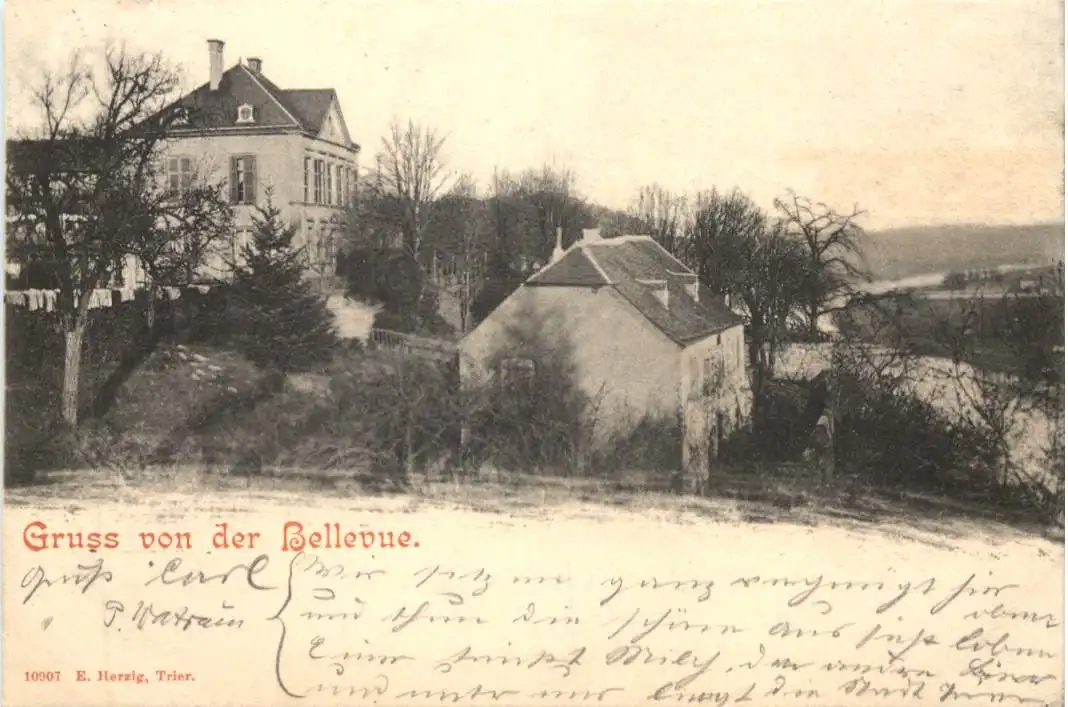 Gruss von der Bellevue.
Gruß Carl
" P. Watrain
Wir sitzen ganz vergnügt hier oben
und thun die schöne Aussicht loben
Einer trinkt Milch, der andre Bier
und unter uns liegt die Stadt Trier
10907 E. Herzig, Trier.